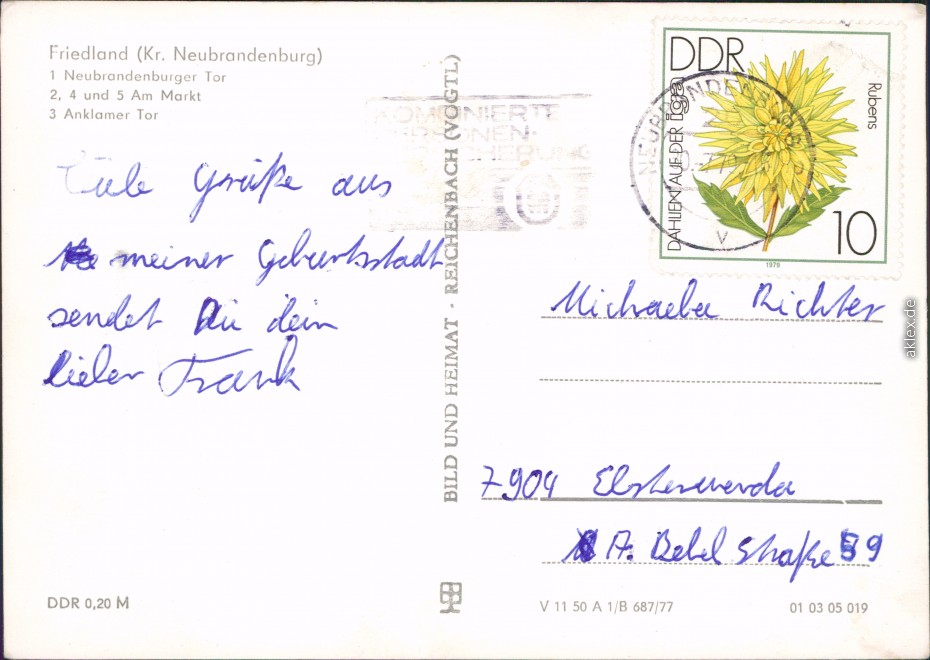 Friedland (Kr. Neubrandenburg)
1 Neubrandenburger Tor
2, 4 und 5 Am Markt
3 Anklamer Tor
Grüße aus
meiner Geburtsstadt
sendet Dir dein
lieber Frank
DDR 0,20 M
BILD UND HEIMAT · REICHENBACH (VOGTL)
KOMBINIERTE
PERSONEN-
DDR
DAHLIEN AUF DER iga
Rubens
10
1979
Michaela Richter
7904 Elsterwerda
A. Bebel Straße 59
V 11 50 A 1/B 687/77
01 03 05 019
aklex.de